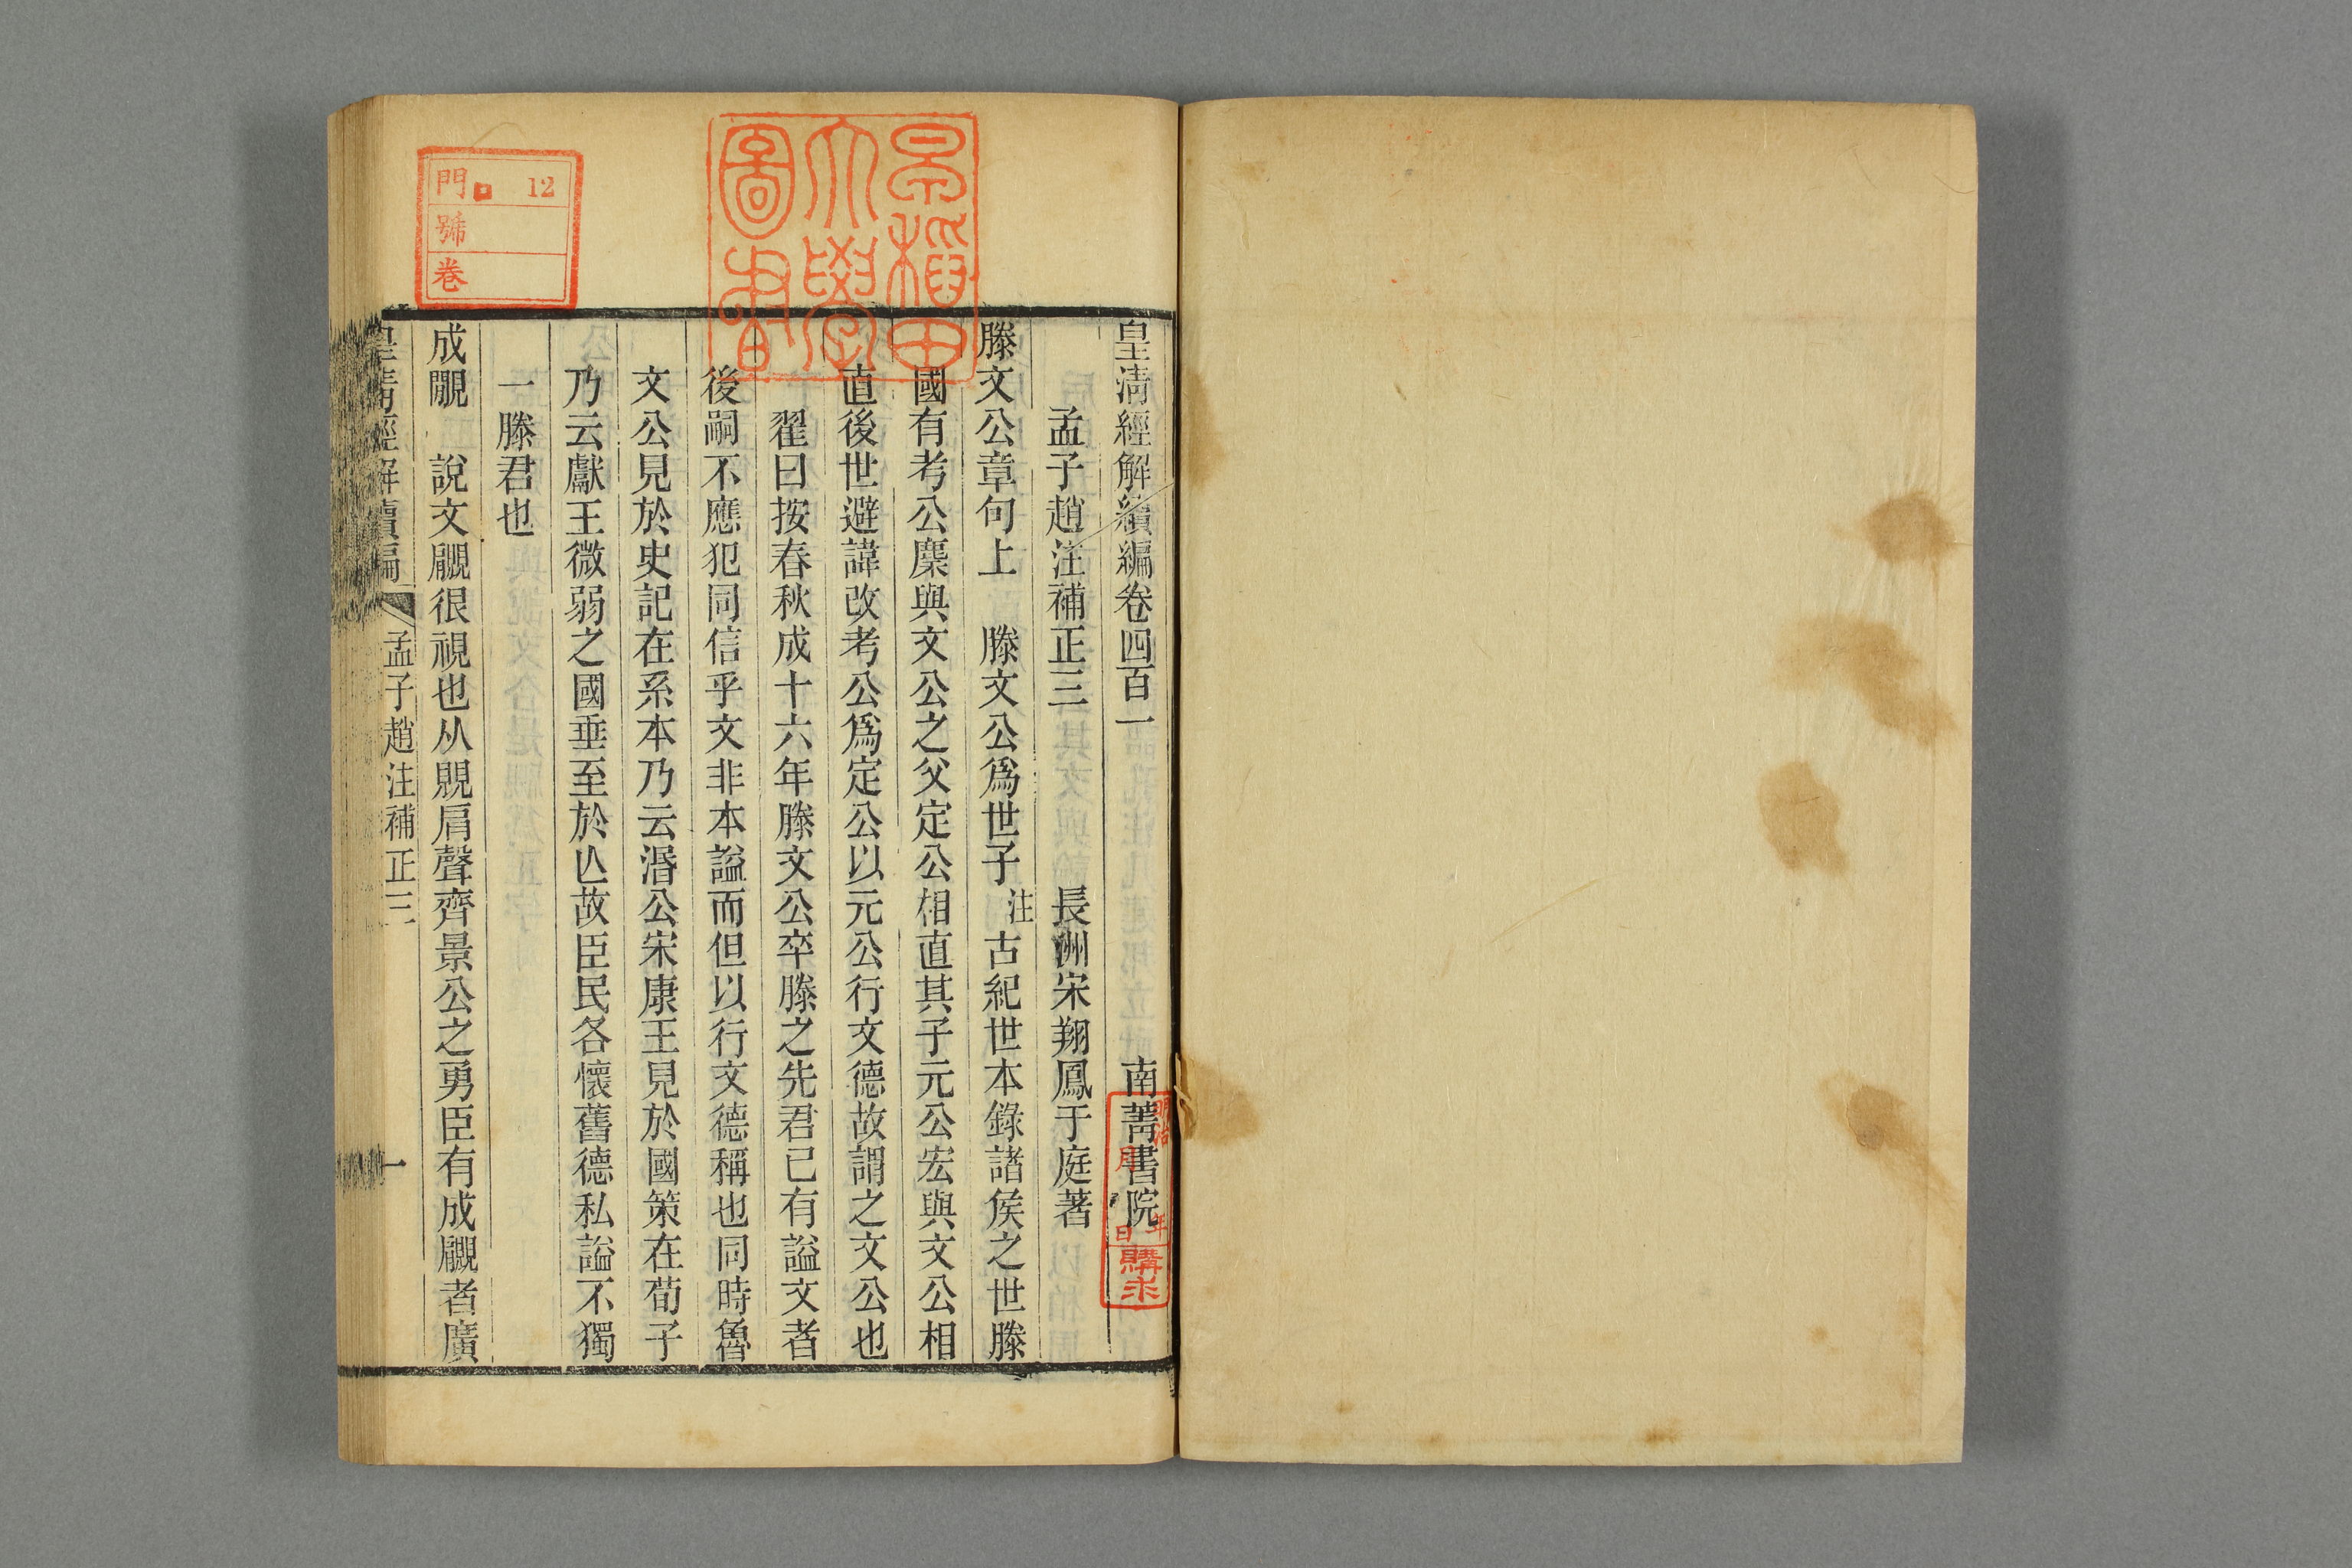 皇清經解續編卷四百一　南菁書院
孟子趙注補正三　長洲宋翔鳳于庭著
滕文公章句上　滕文公爲世子注古紀世本錄諸侯之世滕
國有考公麋與文公之父定公相直其子元公宏與文公相
直後世避諱改考公爲定公以元公行文德故謂之文公也
翟曰按春秋成十六年滕文公卒滕之先君已有謚文者
後嗣不應犯同信乎文非本謚而但以行文德稱也同時魯
文公見於史記在系本乃云湣公宋康王見於國策在荀子
乃云獻王微弱之國垂至於亾故臣民各懷舊德私謚不獨
一滕君也
成覵　說文覵很視也从覞肩聲齊景公之勇臣有成覵者廣
皇清經解續編　孟子趙注補正三　一
早稻田
大學
圖書
門 12
號
卷
明治 年
月 日
購求